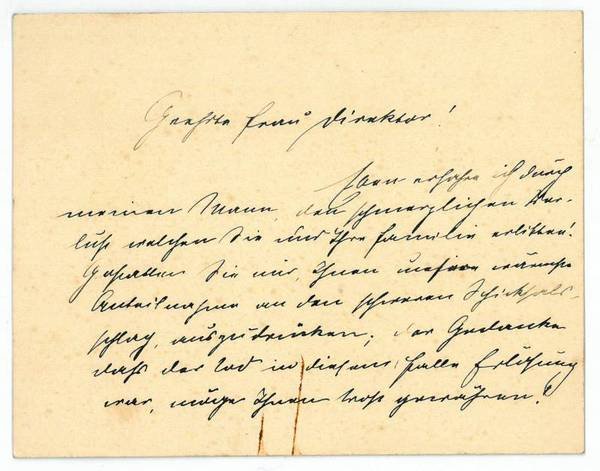 Geehrte Frau Direktor!
Eben erfahre ich durch
meinen Mann, den schmerzlichen Ver-
lust welchen Sie und Ihre Familie erlitten!
Gestatten Sie mir, Ihnen unsere wärmste
Anteilnahme an den schweren Schicksals-
schlag, auszudrücken; der Gedanke
daß der Tod in diesem Falle Erlösung
war, möge Ihnen Trost gewähren!